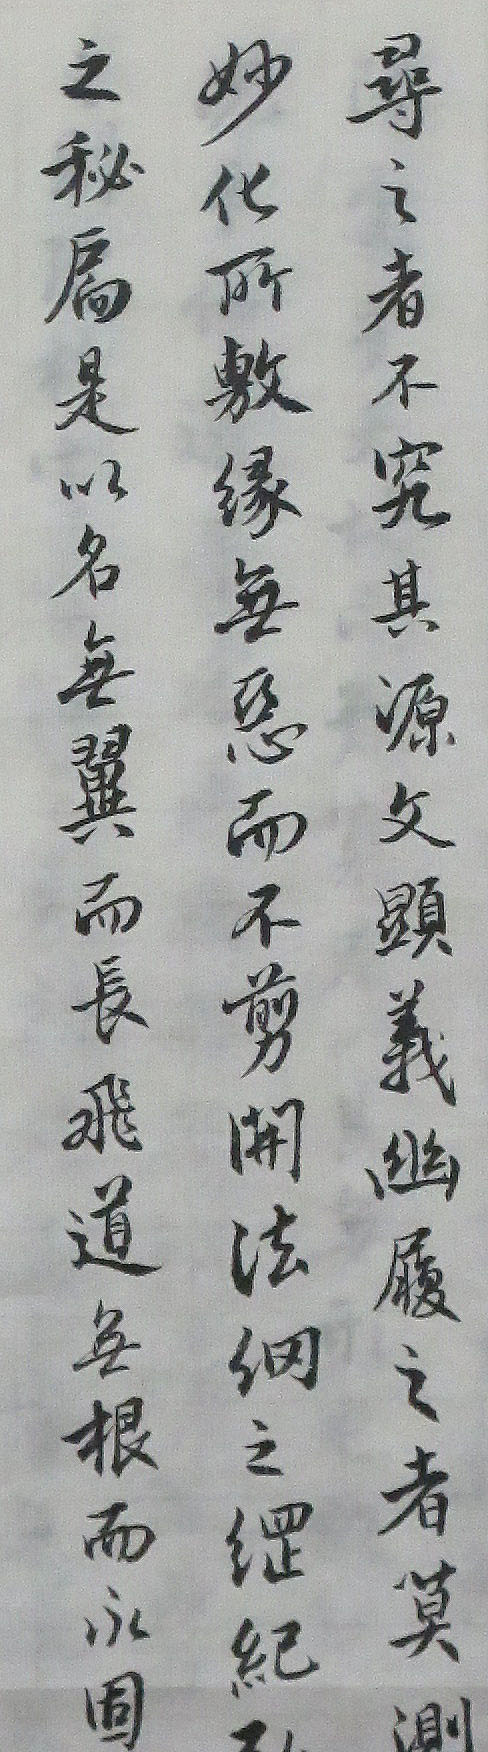 尋之者不究其源文顯義幽履之者莫測
妙化所敷緣無惡而不剪開法網之綱紀
之秘扃是以名無翼而長飛道無根而永固